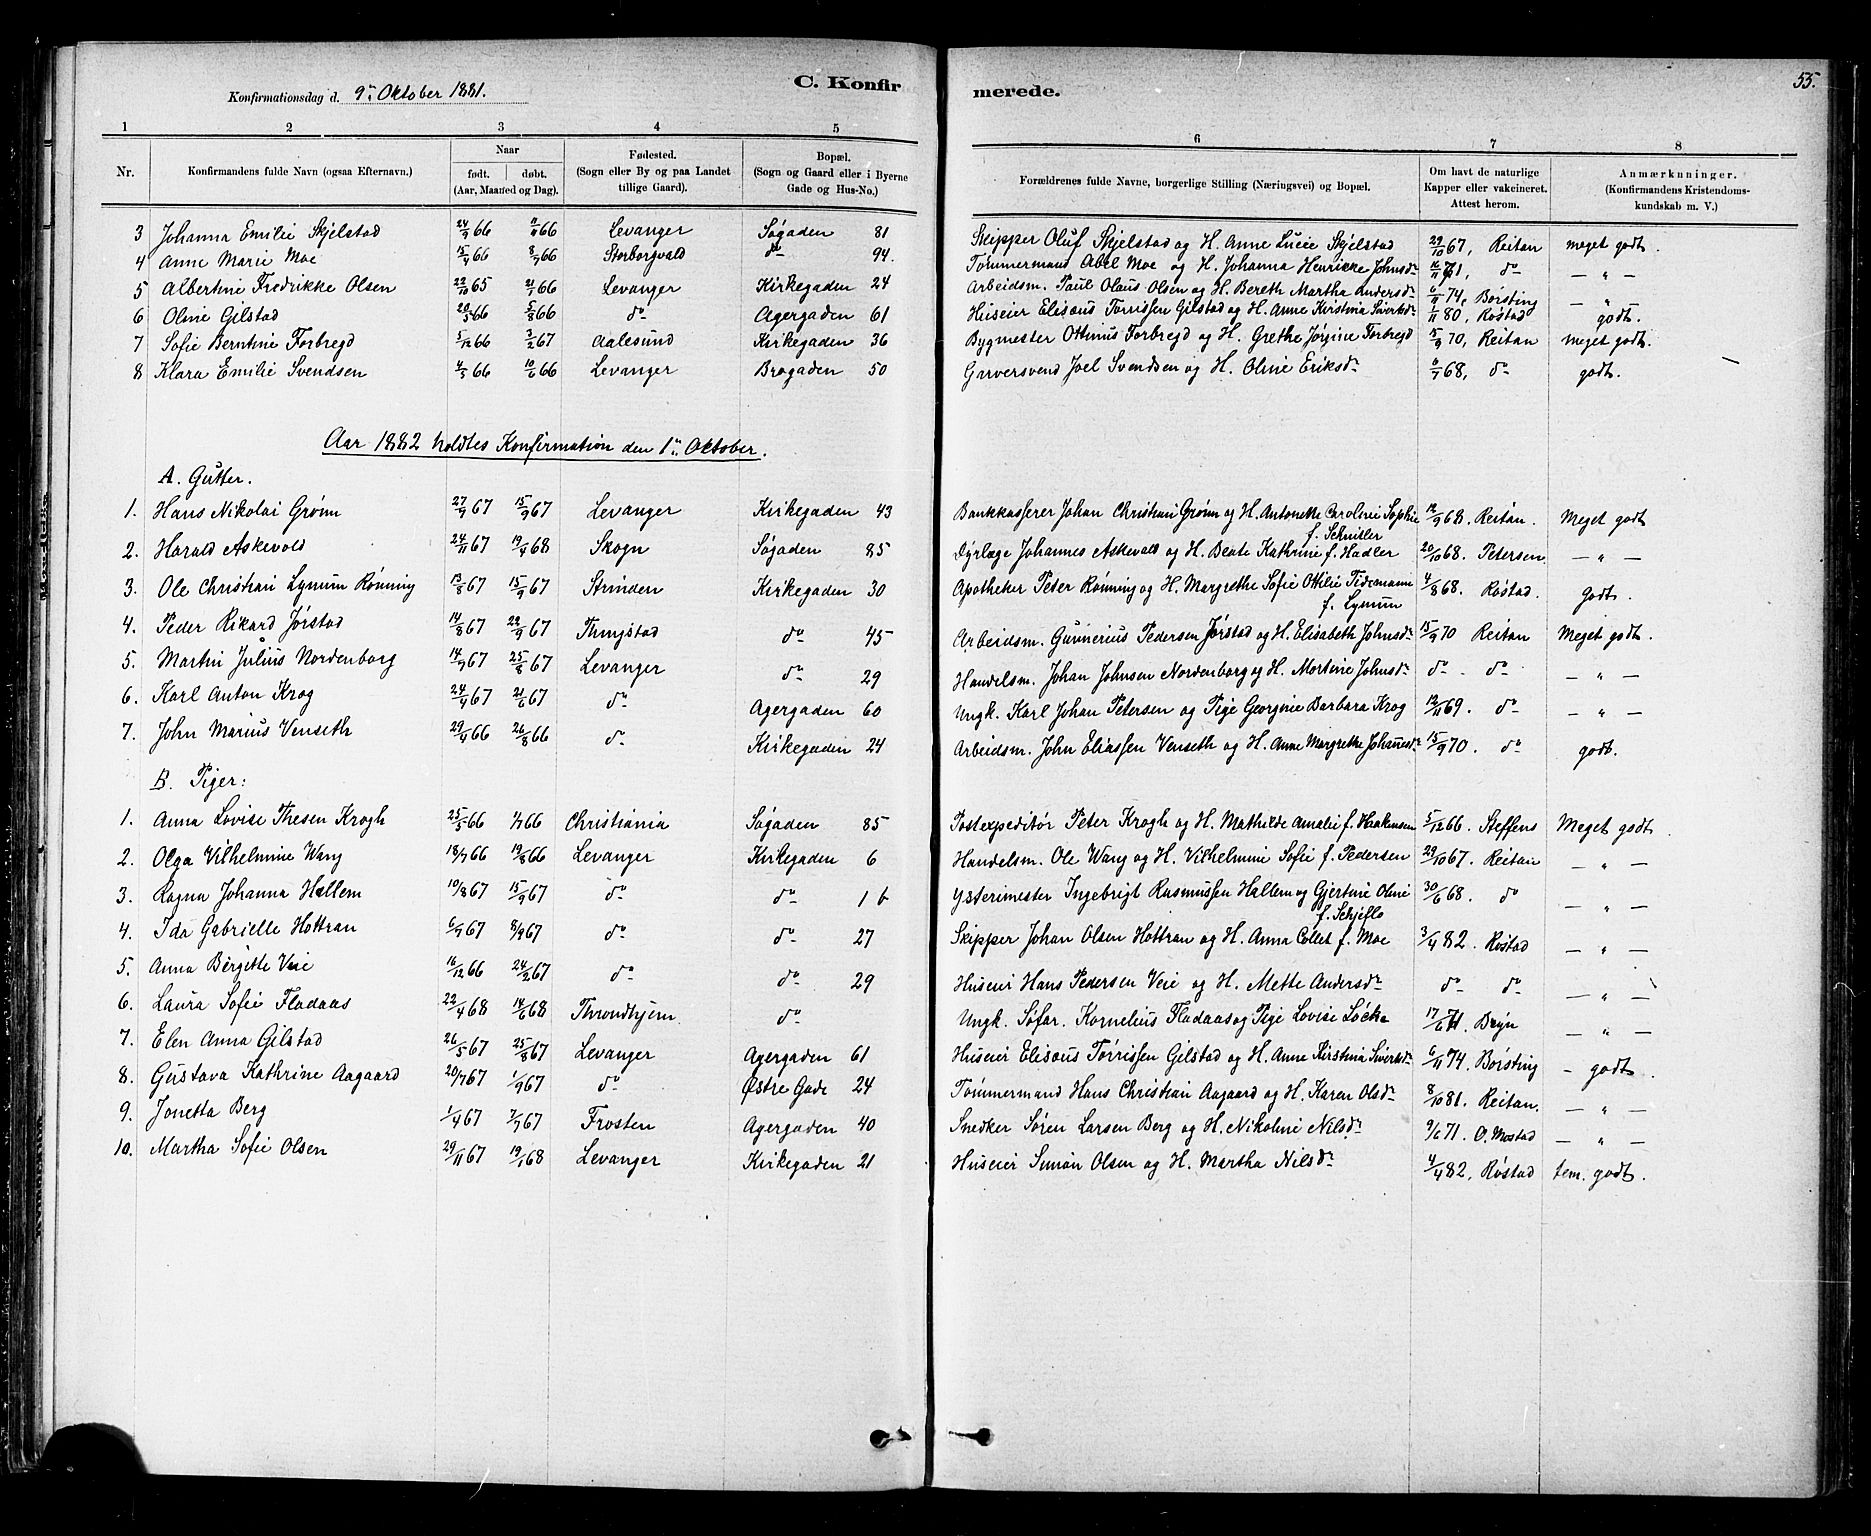 Konfirmationsdag d. 9de Oktober 1881.
C. Konfirmerede.
55.
1 2 3 4 5 6 7 8
Nr. Konfirmandens fulde Navn (ogsaa Efternavn). Naar født. døbt. (Aar, Maaned og Dag). Fødested. (Sogn eller By og paa Landet tillige Gaard). Bopæl. (Sogn og Gaard eller i Byerne Gade og Hus-No.) Forældrenes fulde Navne, borgerlige Stilling (Næringsvei) og Bopæl. Om havt de naturlige Kapper eller vakcineret. Attest herom. Anmærkninger. (Konfirmandens Kristendomskundskab m. V.)
3 Johanna Emilie Skjelstad 24/9 66 11/11 66 Levanger Søgaden 81 Skipper Oluf Skjelstad og H. Anne Lucie Skjelstad 29/10 67, Reitan meget godt.
4 Anne Marie Moe 15/4 66 8/7 66 Storborgvald do 94. Tømmermand Abel Moe og H. Johanna Henrikke Johnsdr 16/11 71, do — " —
5 Albertine Fredrikke Olsen 22/10 65 21/1 66 Levanger Kirkegaden 24 Arbeidsm. Paul Olaus Olsen og H. Bereth Martha Andersdr 6/11 74, Borsting — " —
6 Oline Gilstad 20/5 66 5/8 66 do Agergaden 61 Huseier Elisæus Torrissen Gilstad og H. Anne Kirstina Siverksdr 1/11 80, Røstad godt.
7 Sofie Berntine Forbregd 5/12 66 3/2 67 Aalesund Kirkegaden 36 Bygmester Ottinius Forbregd og H. Grethe Jørgine Forbregd 15/9 70, Reitan meget godt.
8 Klara Emilie Svendsen 4/5 66 10/6 66 Levanger Brogaden 50 Garversvend Joel Svendsen og H. Oline Eriksdr 6/7 68, do godt.
Aar 1882 holdtes Konfirmation den 1ste Oktober.
A. Gutter.
1. Hans Nikolai Grønn 27/7 67 15/9 67 Levanger Kirkegaden 43 Bankkasserer Johan Christian Grønn og H. Antonette Caroline Sophie f. Schnitler 12/9 68. Reitan. Meget godt
2. Harald Askevold 24/11 67 19/4 68 Skogn Søgaden 85 Dyrlæge Johannes Askevold og H. Beate Kathrine f. Hadler 20/10 68. Petersen — " —
3. Ole Christian Lynum Rønning 13/8 67 15/9 67 Strinden Kirkegaden 30 Apotheker Peter Rønning og H. Margrethe Sofie Ottilie Tidemann f. Lynum 4/8 68. Røstad. godt.
4. Peder Rikard Jørstad 14/8 67 22/9 67 Thingstad do 45 Arbeidsm. Gunnerius Pedersen Jørstad og H. Elisabeth Johnsdr 15/9 70 Reitan Meget godt.
5. Martin Julius Nordenborg 14/7 67 25/8 67 Levanger do 29 Handelsm. Johan Johnsen Nordenborg og H. Mortine Johnsdr do do — " —
6. Karl Anton Krog 24/4 67 21/6 67 do Agergaden 60 Ungk. Karl Johan Petersen og Pige Georgine Barbara Krog 12/11 69. do — " —
7. John Marius Venseth 29/4 66 26/8 66 do Kirkegaden 24 Arbeidsm. John Eliassen Venseth og H. Anne Margrethe Johannesdr 15/9 70. do godt.
B. Piger:
1. Anna Lovise Thesen Krogh 25/5 66 1/7 66 Christiania Søgaden 85 Postexpeditør Peter Krogh og H. Mathilde Amalie f. Haakensen 5/12 66. Steffens Meget godt.
2. Olga Vilhelmine Wang 18/7 66 19/8 66 Levanger Kirkegaden 6 Handelsm. Ole Wang og H. Vilhelmine Sofie f. Pedersen 29/10 67. Reitan — " —
3. Ragna Johanna Hallem 10/8 67 15/9 67 do do 1 b Ysterimester Ingebrigt Rasmussen Hallem og Gjertine Oline f. Schjeflo 30/6 68. do — " —
4. Ida Gabrielle Hottran 6/7 67 8/9 67 do do 27 Skipper Johan Olsen Hottran og H. Anna Collet f. Moe 3/4 82. Røstad — " —
5. Anna Birgitte Veie 16/12 66 24/2 67 do do 29 Huseier Hans Pedersen Veie og H. Mette Andersdr do do — " —
6. Laura Sofie Fladaas 22/4 68 14/6 68 Throndhjem do Ungk. Søfar. Kornelius Fladaas og Pige Lovise Løcka 17/6 71. Bryn — " —
7. Elen Anna Gilstad 26/5 67 25/8 67 Levanger Agergaden 61 Huseier Elisæus Torrissen Gilstad og H. Anne Kirstina Siverksdr 6/11 74. Borsting — godt.
8. Gustava Kathrine Aagaard 20/7 67 1/9 67 do Østre Gade 24 Tømmermand Hans Christian Aagaard og H. Karen Olsdr 8/10 81. Reitan. — " —
9. Jonetta Berg 1/4 67 7/7 67 Frosten Agergaden 40 Snedker Søren Larsen Berg og H. Nikoline Nilsdr 9/6 71. O. Mostad — " —
10. Martha Sofie Olsen 29/11 67 19/1 68 Levanger Kirkegaden 21 Huseier Simon Olsen og H. Martha Nilsdr 4/4 82, Røstad tem. godt.